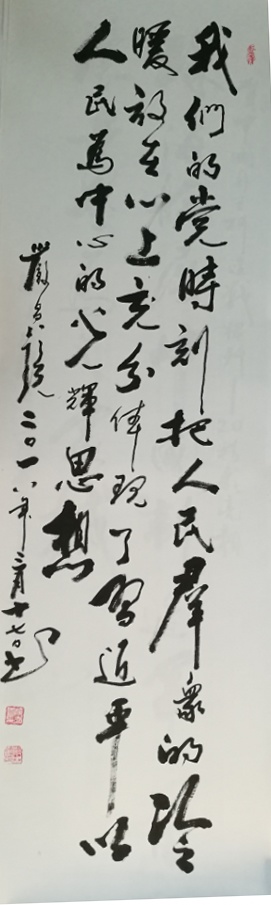 我們的党時刻把人民羣衆的冷
暖放在心上充分体现了習近平以
人民為中心的光輝思想
二〇一八年三月十七日书